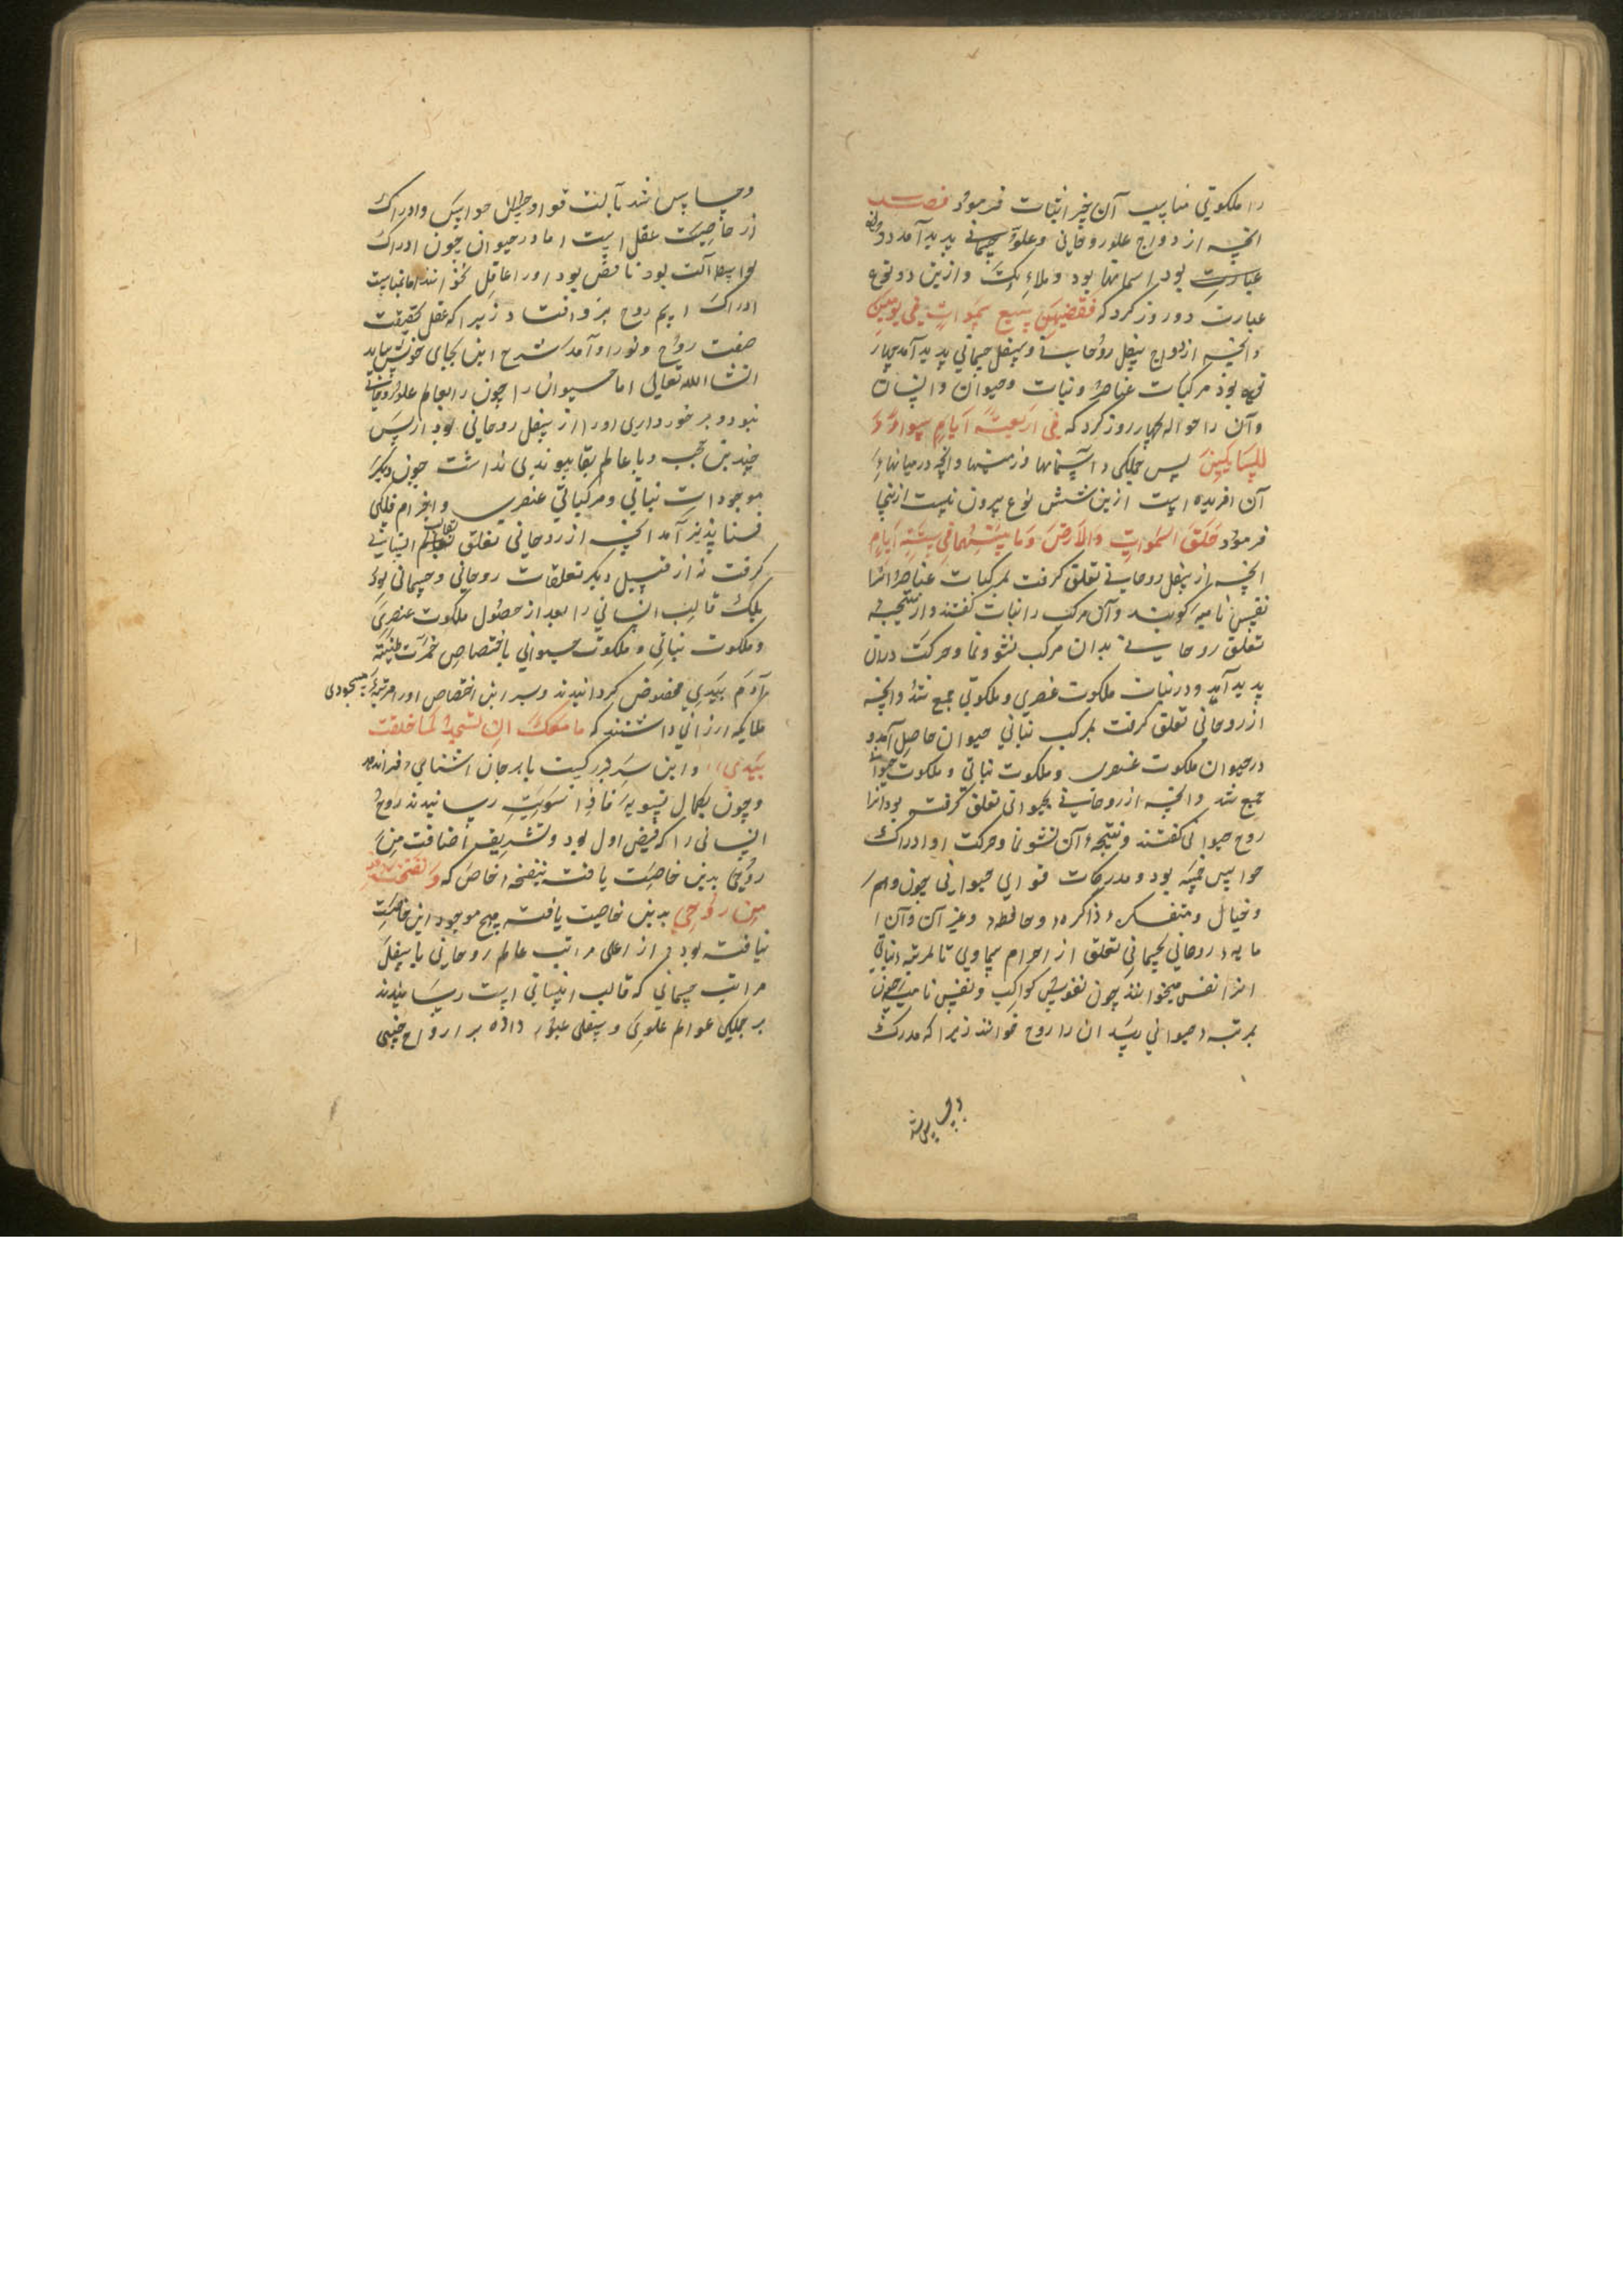 را ملکوتی مناسب آن نیز اثبات فرمود فصـــل
انچه از ازدواج علو روحانی و علو جسمانی پدید آمد دو نوع
عبارت بود اسمانها بود و ملائک وازین دو نوع
عبارت دو روز کرد که فقضیهن سبع سموات فی یومین
وانچه از ازدواج سفل روحانی و سفل جسمانی پدید آمد چهار
نوع بود مرکبات عناصر و نبات و حیوان و انسان
وآن را حواله بچهار روز کرد که فی اربعة ایام سواء
للسایلین پس جملکی آسمانها و زمینها وانچه در میانهاء
آن افریده است ازین شش نوع بیرون نیست ازینجا
فرمود خلق السموات والارض وما بینهما فی ستة ایام
انچه از سفل روحانی تعلق کرفت بمرکبات عناصر انرا
نفس نامیه کویند وآن مرکب را نبات کفتند و از نتیجه
تعلق روحانی بدان مرکب نشو و نما و حرکت دران
پدید آمد و در نبات ملکوت عنصری و ملکوتی جمع شد وانچه
از روحانی تعلق کرفت بمرکب نباتی حیوان حاصل آمد و
در حیوان ملکوت عنصری و ملکوت نباتی و ملکوت حیوانی
جمع شد وانچه از روحانی بحیوانی تعلق کرفته بود انرا
روح حیوانی کفتند و نتیجه آن نشو نما و حرکت او ادراک
حواس خمسه بود و مدرکات قوای حیوانی چون وهم
و خیال و متفکره و ذاکره و حافظه و غیر آن وآن
مایه روحانی بجسمانی تعلق از اجرام سماوی تا بمرتبه نباتی
انرا نفس میخوانند چون نفوس کواکب و نفس نامیه چون
بمرتبه حیوانی رسد ان را روح خوانند زیرا که مدرک
وحساس شد
وحساس شد بآلت قوا و حواس وادراک
از خاصیت عقل است اما در حیوان چون ادراک
بواسطه آلت بود ناقص بود اورا عاقل نخوانند اما بمناسبت
ادراک اسم روح برو افتاد زیرا که عقل بحقیقت
صفت روح و نور او آمد شرح این بجای خویش بیاید
انشاالله تعالی اما حیوان را چون راه بعالم علو روحانی
نبود و برخورداری اورا از سفل روحانی بود از پس
چندین حجب و با عالم بقا پیوندی نداشت چون دیکر
موجودات نباتی و مرکباتی عنصری و اجرام فلکی
فنا پذیر آمد انچه از روحانی تعلق بقالب انسانی
کرفت نه از قبیل دیکر تعلقات روحانی و جسمانی بود
بلک قالب انسانی را بعد از حصول ملکوت عنصری
و ملکوت نباتی و ملکوت حیوانی باختصاص خمرت طینة
آدم بیدی مخصوص کردانیدند و سر این اختصاص اورا مرتبه مسجودی
ملایکه ارزانی داشتند که ما منعک ان تسجد لما خلقت
بیدی واین سر بزرکیست با هر جان اشنای فراندهد
و چون بکمال تسویه فاذا سویته رسانیدند روح
انسانی را که فیض اول بود و تشریف اضافت من
روحی بدین خاصیت یافت بنفخه خاص که ونفخت فیه
من روحی بدین خاصیت یافته هیچ موجود این خاصیت
نیافته بود و از اعلی مراتب عالم روحانی باسفل
مراتب جسمانی که قالب انسانی است رسانیدند
بر جملکی عوالم علوی و سفلی عبور داده بر ارواح جنسی